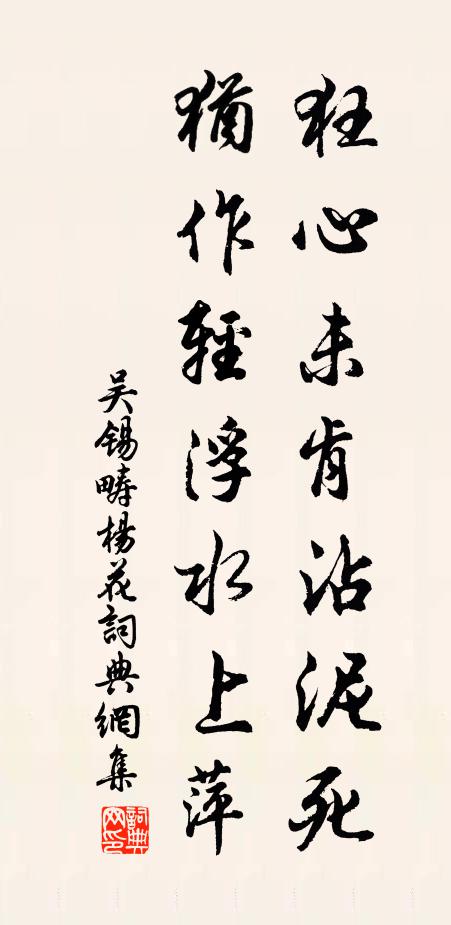 狂心未肯沾泥死
猶作輕浮水上萍
吴錫疇楊花詞典網集
詞典網印